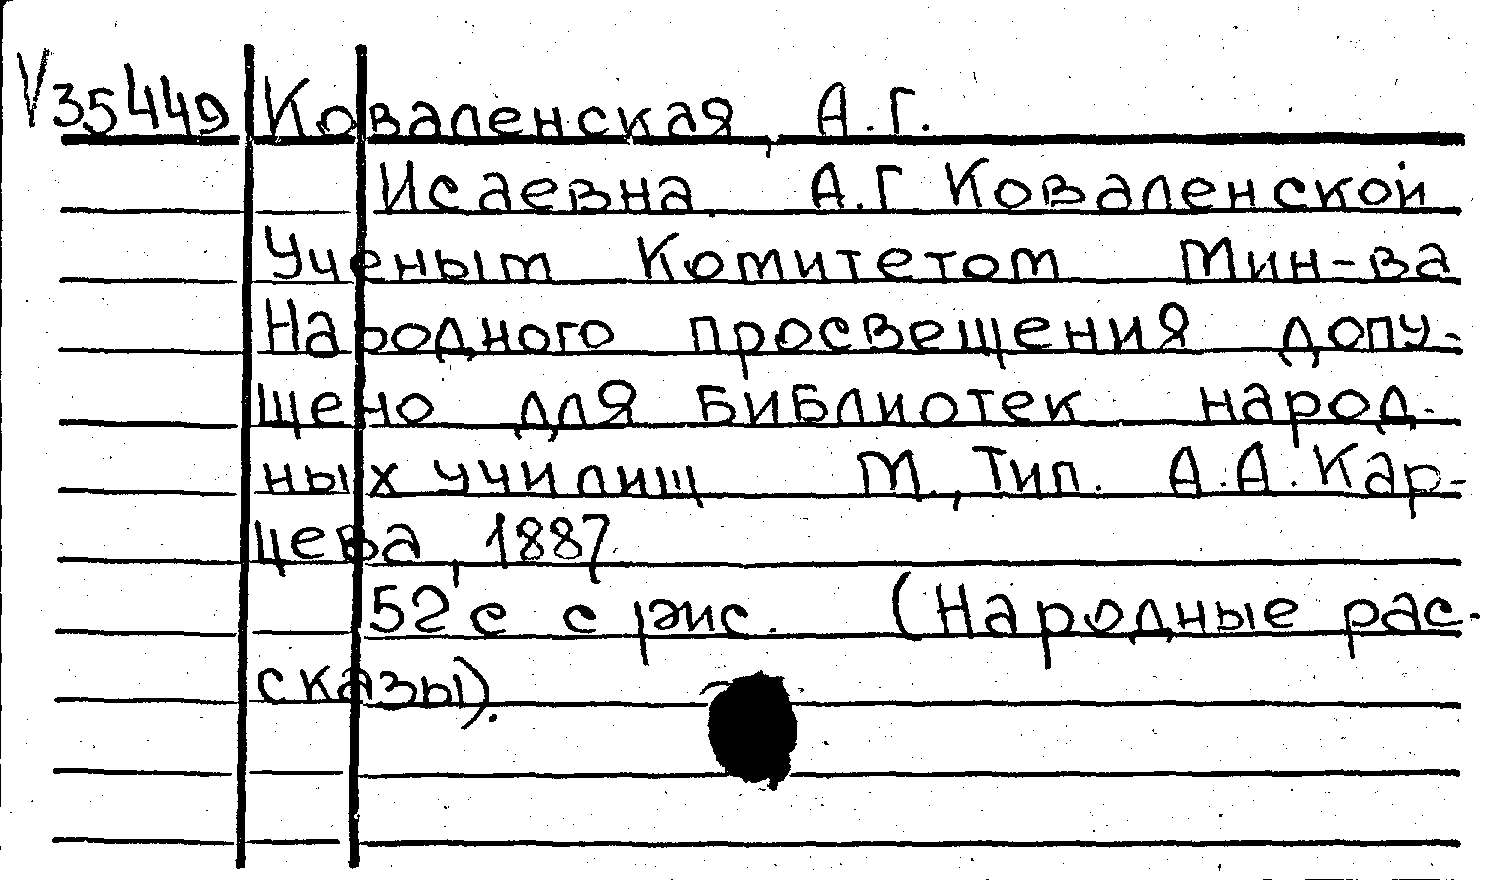 V35449 Коваленская, А.Г.
Исаевна А.Г Коваленской
Ученым Комитетом Мин-ва
Народного просвещения допу-
щено для библиотек народ-
ных училищ М., Тип. А.А. Кар-
цева, 1887
52 с с рис. (Народные рас-
сказы).